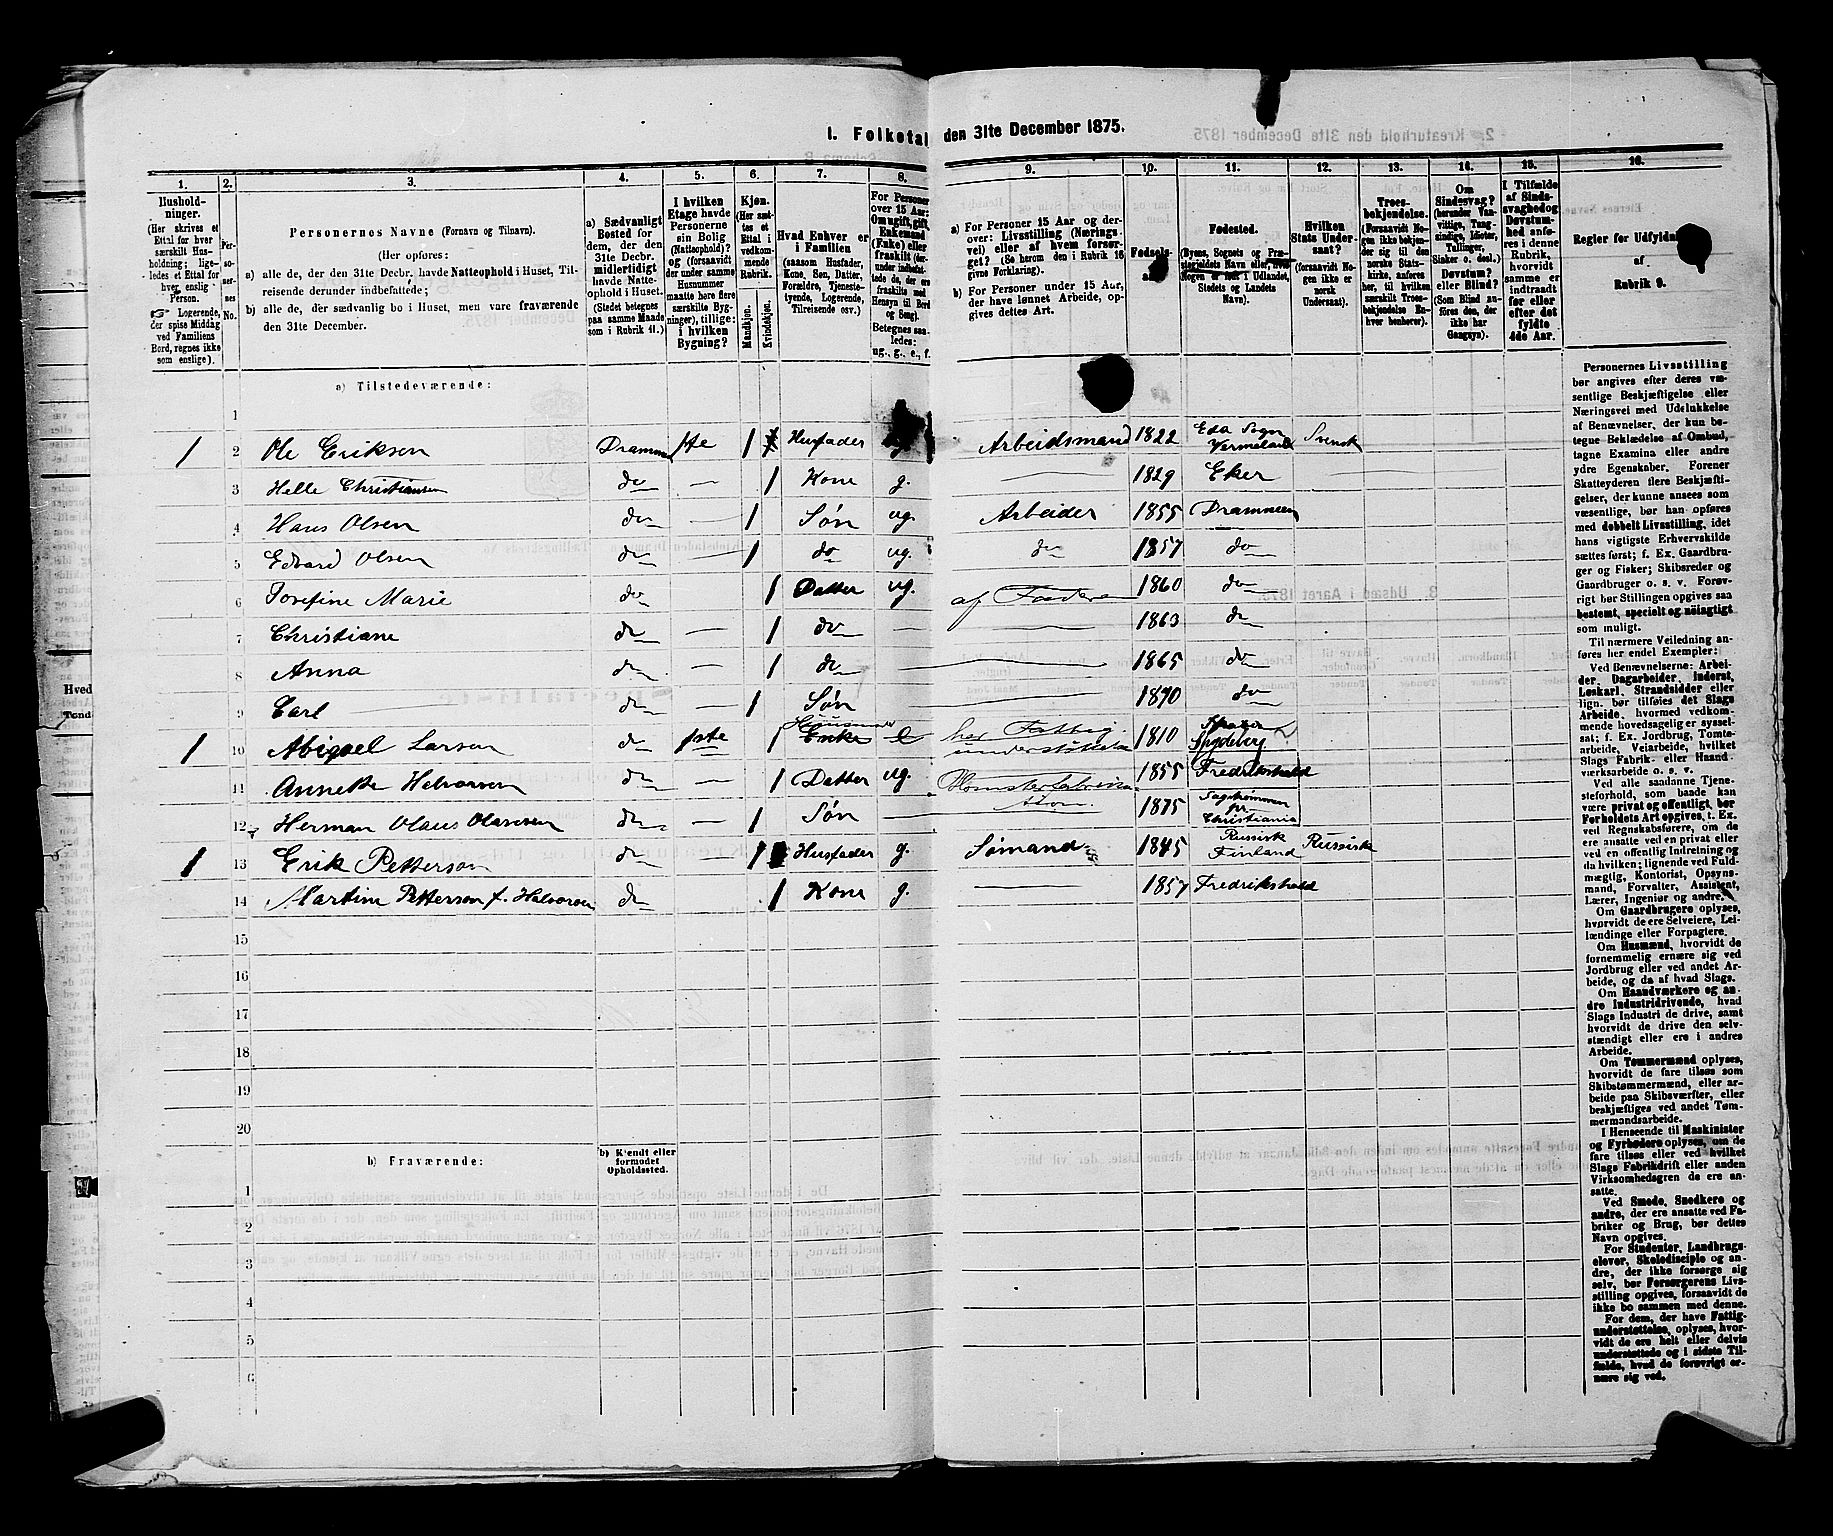 1. Folketal den 31te December 1875.
1. 2. 3. 4. 5. 6. 7. 8. 9. 10. 11. 12. 13. 14. 15. 16.
Husholdninger.
(Her skrives et
Ettal for hver
særskilt Husholdning; ligeledes
et Ettal for
enslig Person.
☞ Logerende,
der spise Middag
ved Familiens
Bord, regnes ikke
som enslige).
Personernes No.
Personernes Navne (Fornavn og Tilnavn).
(Her opføres:
a) alle de, der den 31te Decbr. havde Natteophold i Huset, Tilreisende derunder indbefattede;
b) alle de, der sædvanlig bo i Huset, men vare fraværende
den 31te December.
a) Sædvanligt
Bosted for
dem, der den
31te Decbr.
midlertidigt
havde Natteophold i Huset.
(Stedet betegnes
paa samme Maade
som i Rubrik 11.)
I hvilken
Etage havde
Personerne
sin Bolig
(Natteophold)?
og (forsaavidt
der under samme
Husnummer
maatte høre flere
særskilte Bygninger), tillige:
i hvilken
Bygning?
Kjøn.
(Her sættes et
Ettal i
vedkommende
Rubrik.
Mandkjøn.
Kvindekjøn.
Hvad Enhver er
i Familien
(saasom Husfader,
Kone, Søn, Datter,
Forældre, Tjenestetyende, Logerende,
Tilreisende osv.)
For Personer
over 15 Aar:
Om ugift, gift,
Enkemand
(Enke) eller
fraskilt
Betegnes saaledes:
ug., g., e., f.
a) For Personer 15 Aar og derover: Livsstilling (Næringsvei) eller af hvem forsørget? (Se herom den i Rubrik 16
givne Forklaring).
b) For Personer under 15 Aar,
der have lønnet Arbeide, opgives dettes Art.
Fødselsaar.
Fødested.
(Byens, Sognets og Præstegjeldets Navn eller, hvis
Nogen er født i Udlandet,
Stedets og Landets
Navn).
Hvilken
Stats Undersaat?
(forsaavidt Nogen ikke er
norsk
Undersaat).
Troesbekjendelse.
(Forsaavidt Nogen ikke bekjender sig til den
norske Statskirke, anføres
her, til hvilken
særskilt Troesbekjendelse Enhver henhører).
Om
Sindssvag?
(herunder Vanvittige, Tungsindige, Idioter,
Tullinger,
Sinker o. desl.)
Døvstum?
eller Blind?
(Som Blind anføres den, der
ikke har
Gangsyn).
I Tilfælde
af Sindssvaghed og
Døvstumhed anføres
i denne
Rubrik,
hvorvidt
samme er
indtraadt
før eller
efter det
fyldte
4de Aar.
Regler for Udfyldning
af
Rubrik 9.
a) Tilstedeværende:
1
1 2 Ole Erikson Drammen 1te 1 Husfader g Arbeidsmand 1822 Eda Sogn Vermeland Svensk
3 Helle Christiansen do — 1 Kone g. — 1829 Eker
4 Hans Olsen do — 1 Søn ug. Arbeider 1855 Drammen
5 Edvard Olsen do — 1 do ug. do 1857 do
6 Josefine Marie do 1 Datter ug. af Fadern 1860 do
7 Christiane do — 1 do — 1863 do
8 Anna do — 1 do — 1865 do
9 Carl do 1 Søn — 1870 do
1 10 Abigael Larsen do 1ste 1 Enke e har Fattigunderstøttelse 1810 Spydeberg
11 Annette Halvorsen do — 1 Datter ug. 1855 Fredrikshald
12 Herman Olaus Olavesen do — 1 Søn — 1875 Christiania
1 13 Erik Petterson do — 1 Husfader g. Sømand 1845 Russisk Finland Russisk
14 Martine Petterson f. Halvorsen do 1 Kone g. — 1857 Fredrikshald
15
16
17
18
19
20
b) Fraværende:
b) Kjendt eller
formodet
Opholdssted.
1
2
3
4
5
6
Personernes Livsstilling
bør angives efter deres væsentlige Beskjæftigelse eller
Næringsvei med Udelukkelse
af Benævnelser, der kun betegne Bekledelse af Ombud,
tagne Examina eller andre
ydre Egenskaber. Forener
Skatteyderen flere Beskjæftigelser, der kunne ansees som
væsentlige, bør han opføres
med dobbelt Livsstilling, idet
hans vigtigste Erhvervskilde
sættes først; f. Ex. Gaardbruger og Fisker; Skibsreder og
Gaardbruger o. s. v. Forøvrigt bør Stillingen opgives saa
bestemt, specielt og nøiagtigt
som muligt.
Til nærmere Veiledning anføres her endel Exempler:
Ved Benævnelserne: Arbeider, Dagarbeider, Inderst,
Løskarl, Strandsidder eller
lign. bør tilføies det Slags
Arbeide, hvormed vedkommende hovedsagelig er sysselsat; f. Ex. Jordbrug, Tomtearbeide, Veiarbeide, hvilket
Slags Fabrik- eller Haandværksarbeide o. s. v.
Ved alle saadanne Tjenesteforhold, som baade kan
være privat og offentligt, bør
Forholdets Art opgives, f. Ex.
ved Regnskabsførere, om de
ere ansatte ved en privat eller
ved en offentlig Indretning og
da hvilken; lignende ved Fuldmægtig, Kontorist, Opsynsmand, Forvalter, Assistent,
Lærer, Ingeniør og andre.
Om Gaardbrugere oplyses,
hvorvidt de ere Selveiere, Leilændinge eller Forpagtere.
Om Husmænd, hvorvidt de
fornemmelig ernære sig ved
Jordbrug eller ved andet Arbeide, og da af hvad Slags.
Om Haandværkere og andre Industridrivende, hvad
Slags Industri de drive, samt
hvorvidt de drive den selvstændigt eller ere i andres
Arbeide.
Om Tømmermænd oplyses,
hvorvidt de fare tilsøs som
Skibstømmermænd, eller arbeide paa Skibsværfter, eller
beskjæftiges ved andet Tømmermandsarbeide.
I Henseende til Maskinister
og Fyrbødere oplyses, om de
fare tilsøs eller ved hvilket
Slags Fabrikdrift eller anden
Virksomhedsgren de ere ansatte.
Ved Smede, Snedkere og
andre, der ere ansatte ved Fabriker og Brug, bør dettes
Navn opgives.
For Studenter, Landbrugselever, Skoledisciple og andre, der ikke forsørge sig
selv, bør Forsørgerens Livsstilling opgives, forsaavidt de
ikke bo sammen med denne.
For dem, der have Fattigunderstøttelse, oplyses, hvorvidt de ere helt eller delvis
understøttede og i sidste Tilfælde, hvad de forøvrigt ernære sig ved.